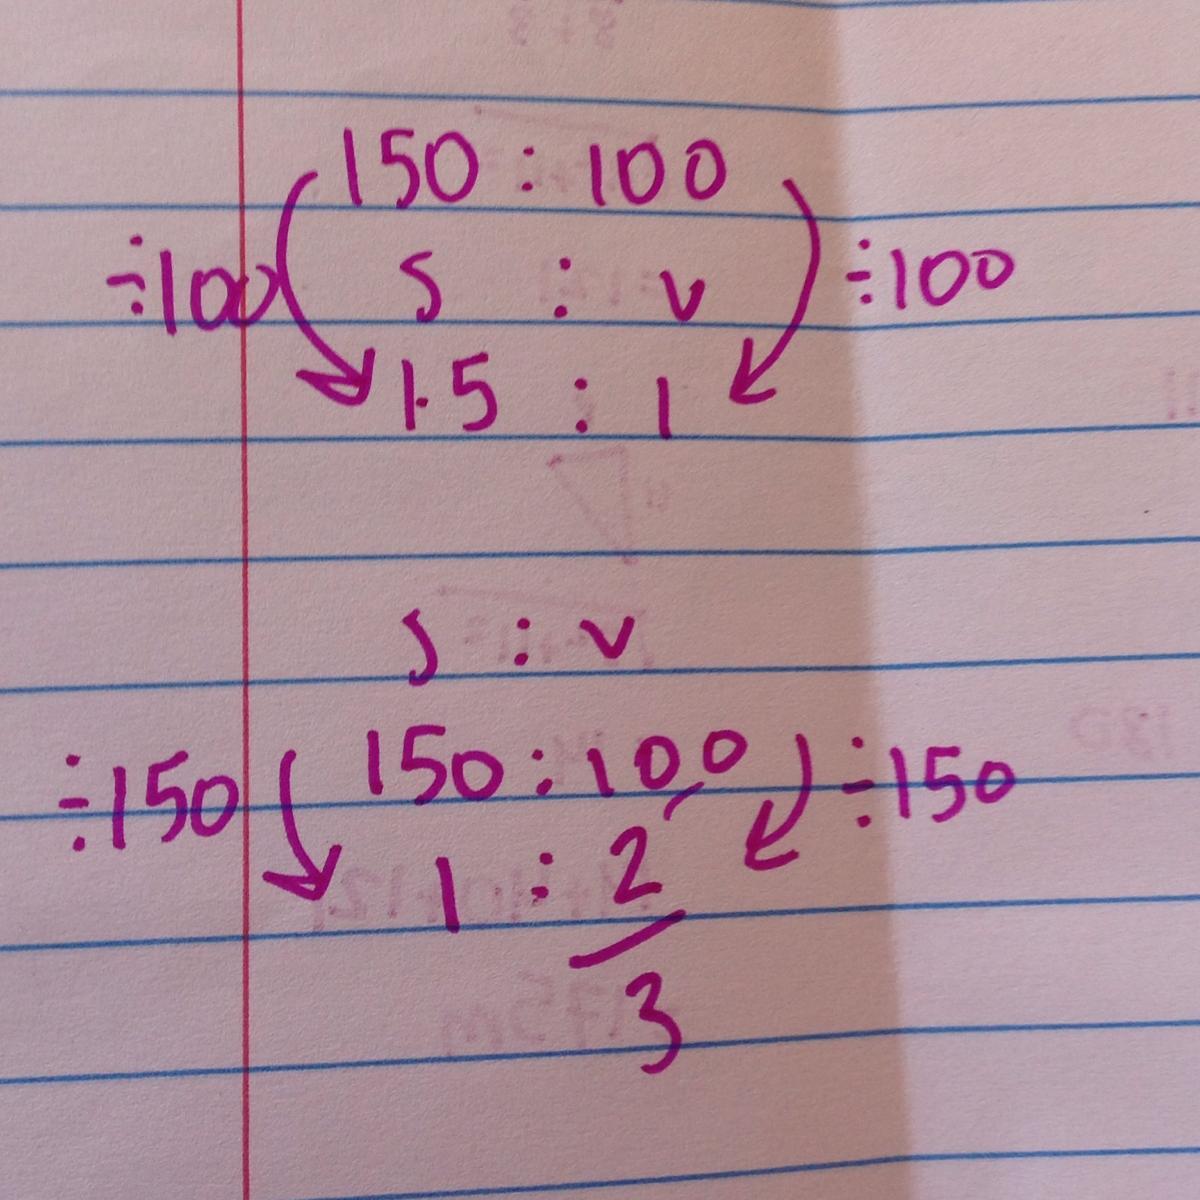 150 : 100
÷100 s : v ÷100
1.5 : 1
s : v
÷150 150 : 100 ÷150
1 : 2
3